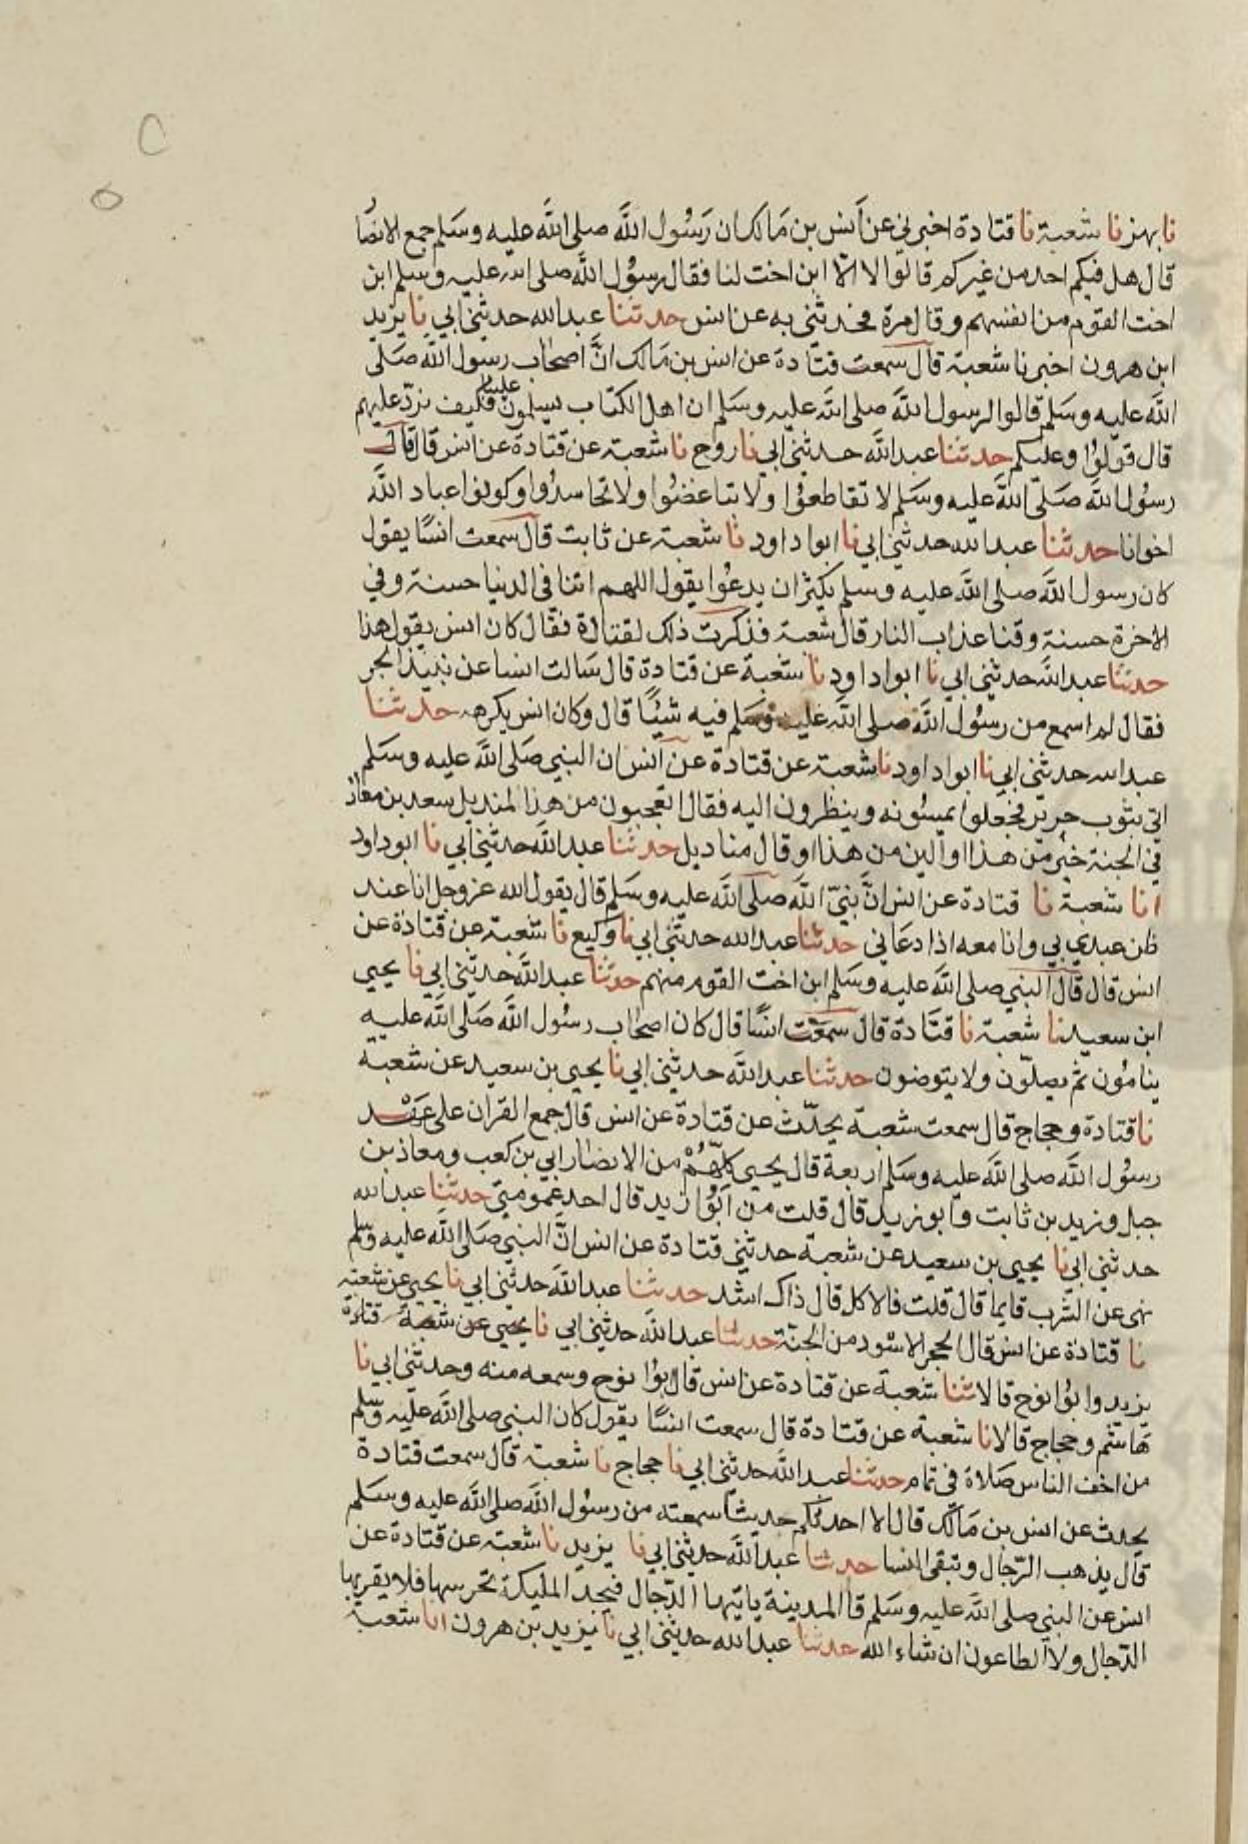 نا بهز نا شعبة نا قتادة اخبرني عن أنس بن مالك ان رسول الله صلى الله عليه وسلم جمع الانصا
قال هل فيكم احد من غيركم قالوا لا الا ابن اخت لنا فقال رسول الله صلى الله عليه وسلم ابن
اخت القوم من انفسهم وقال مرة فحدثني به عن انس حدثنا عبد الله حدثني ابي نا يزيد
ابن هرون اخبرنا شعبة قال سمعت قتادة عن انس بن مالك انَّ اصحاب رسول الله صلى
الله عليه وسلم قالوا لرسول الله صلى الله عليه وسلم ان اهل الكتاب يسلمون علينا فكيف نردّ عليهم
قال قولوا وعليكم حدثنا عبد الله حدثني ابي نا روح نا شعبة عن قتادة عن انس قال قال
رسول الله صلى الله عليه وسلم لا تقاطعوا ولا تباغضوا ولا تحاسدوا وكونوا عباد الله
اخوانا حدثنا عبد الله حدثني ابي نا ابو داود نا شعبة عن ثابت قال سمعت انسًا يقول
كان رسول الله صلى الله عليه وسلم يكثر ان يدعوا يقول اللهم اتنا في الدنيا حسنة وفي
الاخرة حسنة وقنا عذاب النار قال شعبة فذكرت ذلك لقتادة فقال كان انس يقول هذا
حدثنا عبد الله حدثني ابي نا ابو داود نا شعبة عن قتادة قال سالت انسا عن نبيذ الجر
فقال لم اسمع من رسول الله صلى الله عليه وسلم فيه شيًا قال وكان انس يكرهه حدثنا
عبد الله حدثني ابي نا ابو داود نا شعبة عن قتادة عن انس ان النبي صلى الله عليه وسلم
اتي بثوب حرير فجعلوا يمسونه وينظرون اليه فقال اتعجبون من هذا لمنديل سعد بن معاذ
في الجنة خير من هذا او ألين من هذا او قال مناديل حدثنا عبد الله حدثني ابي نا ابو داود
انا شعبة نا قتادة عن انس انَّ نبيّ الله صلى الله عليه وسلم قال يقول الله عز وجل انا عند
ظن عبدي بي وانا معه اذا دعاني حدثنا عبد الله حدثني ابي نا وكيع نا شعبة عن قتادة عن
انس قال قال النبي صلى الله عليه وسلم ابن اخت القوم منهم حدثنا عبد الله حدثني ابي نا يحيى
ابن سعيد نا شعبة نا قتادة قال سمعت انسًا قال كان اصحاب رسول الله صلى الله عليه
ينامون ثم يصلّون ولا يتوضون حدثنا عبد الله حدثني ابي نا يحيى بن سعيد عن شعبة
نا قتادة وحجاج قال سمعت شعبة يحدّث عن قتادة عن انس قال جمع القران على عهد
رسول الله صلى الله عليه وسلم اربعة قال يحيى كلّهُمْ من الانصار ابي بن كعب ومعاذ بن
جبل وزيد بن ثابت وابو زيد قال قلت من ابو زيد قال احد عمومتي حدثنا عبد الله
حدثني ابي نا يحيى بن سعيد عن شعبة حدثني قتادة عن انس انَّ النبي صلى الله عليه وسلم
نهى عن الشرب قايما قال قلت فالاكل قال ذاك اشد حدثنا عبد الله حدثني ابي نا يحيى عن شعبة
نا قتادة عن انس قال الحجر الاسود من الجنّة حدثنا عبد الله حدثني ابي نا يحيى عن شعبة قتادة
يزيد وابو نوح قالا ثنا شعبة عن قتادة عن انس قال ابو نوح وسمعه منه وحدثني ابي نا
هاشم وحجاج قالا نا شعبة عن قتادة قال سمعت انسًا يقول كان النبي صلى الله عليه وسلم
من اخف الناس صلاة في تمام حدثنا عبد الله حدثني ابي نا حجاج نا شعبة قال سمعت قتادة
يحدث عن انس بن مالك قال الا احدثكم حديثا سمعته من رسول الله صلى الله عليه وسلم
قال يذهب الرجال وتبقى النسا حدثنا عبد الله حدثني ابي نا يزيد نا شعبة عن قتادة عن
انس عن النبي صلى الله عليه وسلم قا المدينة ياتيها الدّجال فيجد المليكة تحرسها فلا يقربها
الدّجال ولا الطاعون ان شاء الله حدثنا عبد الله حدثني ابي نا يزيد بن هرون انا شعبة